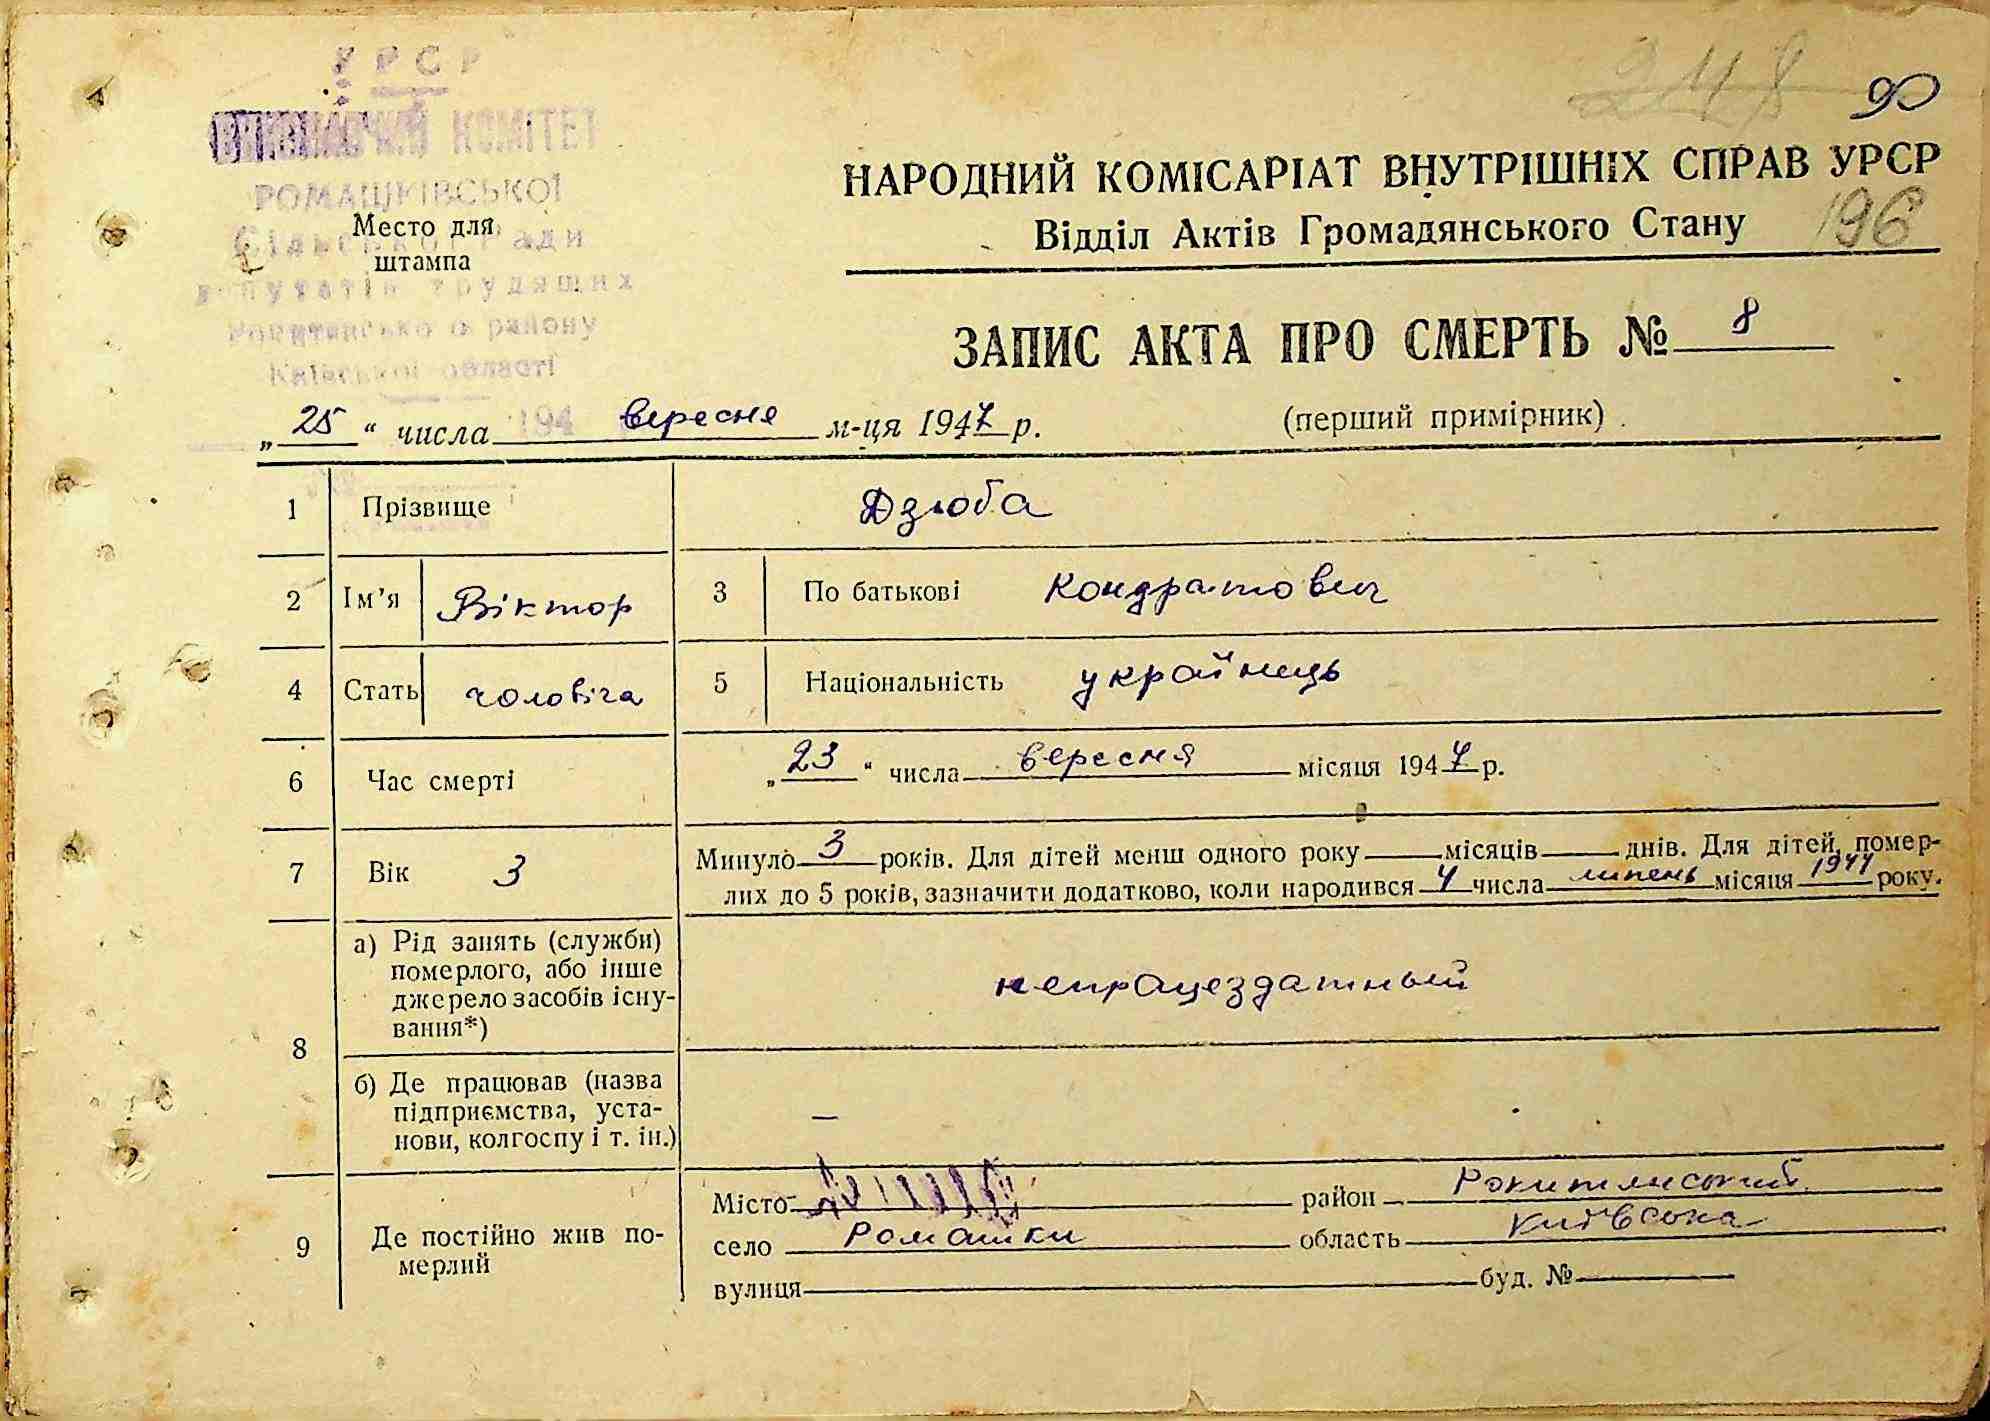 УРСР
ВИКОНАВЧИЙ КОМІТЕТ
РОМАШКІВСЬКОЇ
Сільської Ради
депутатів трудящих
Рокитянського району
Київської області
194
Место для
штампа
248
90
НАРОДНИЙ КОМІСАРІАТ ВНУТРІШНІХ СПРАВ УРСР
Відділ Актів Громадянського Стану
196
ЗАПИС АКТА ПРО СМЕРТЬ № 8
„25“ числа вересня м-ця 1947 р. (перший примірник)
1 Прізвище Дзюба
2 Ім’я Віктор 3 По батькові Кондратович
4 Стать чоловіча 5 Національність українець
6 Час смерті „23“ числа вересня місяця 1947 р.
7 Вік 3 Минуло 3 років. Для дітей менш одного року місяців днів. Для дітей, помер-
лих до 5 років, зазначити додатково, коли народився 4 числа липень місяця 1944 року.
8 а) Рід занять (служби)
померлого, або інше
джерело засобів існу-
вання*)
непрацездатный
б) Де працював (назва
підприємства, уста-
нови, колгоспу і т. ін.)
—
9 Де постійно жив по-
мерлий
Місто район Рокитянський
село Ромашки область Київська
вулиця буд. №